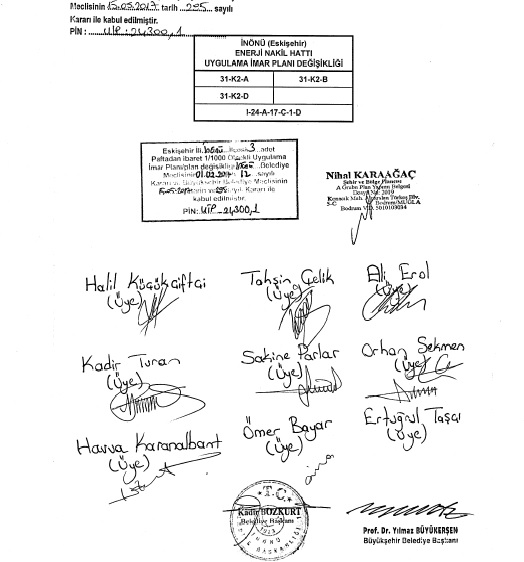 Meclisinin 15.05.2017 tarih 205 sayılı
Kararı ile kabul edilmiştir.
PİN : UİP-24300,1
İNÖNÜ (Eskişehir)
ENERJİ NAKİL HATTI
UYGULAMA İMAR PLANI DEĞİŞİKLİĞİ
31-K2-A 31-K2-B
31-K2-D
I-24-A-17-C-1-D
Eskişehir İli, İnönü 3 adet
Paftadan ibaret 1/1000 Ölçekli Uygulama
İmar Planı/plan değişikliği Belediye
Meclisinin 12 sayılı
Kararı ve Büyükşehir Belediye Meclisinin
Kararı ile
kabul edilmiştir.
PİN: UİP-24300,1
Nihal KARAAĞAÇ
Şehir ve Bölge Plancısı
A Grubu Plan Yapım Belgesi
Bodrum/MUĞLA
Bodrum V.D. 5010103034
Halil Küçükçiftçi Tahsin Çelik Ali Erol
(Üye) (Üye) (Üye)
Kadir Turan Sakine Parlar Orhan Sekmen
(Üye) (Üye) (Üye)
Havva Karanalbant Ömer Bayar Ertuğrul Taşçı
(Üye) (Üye) (Üye)
T.C.
Kadir BOZKURT
Belediye Başkanı
İNÖNÜ
Prof. Dr. Yılmaz BÜYÜKERŞEN
Büyükşehir Belediye Başkanı